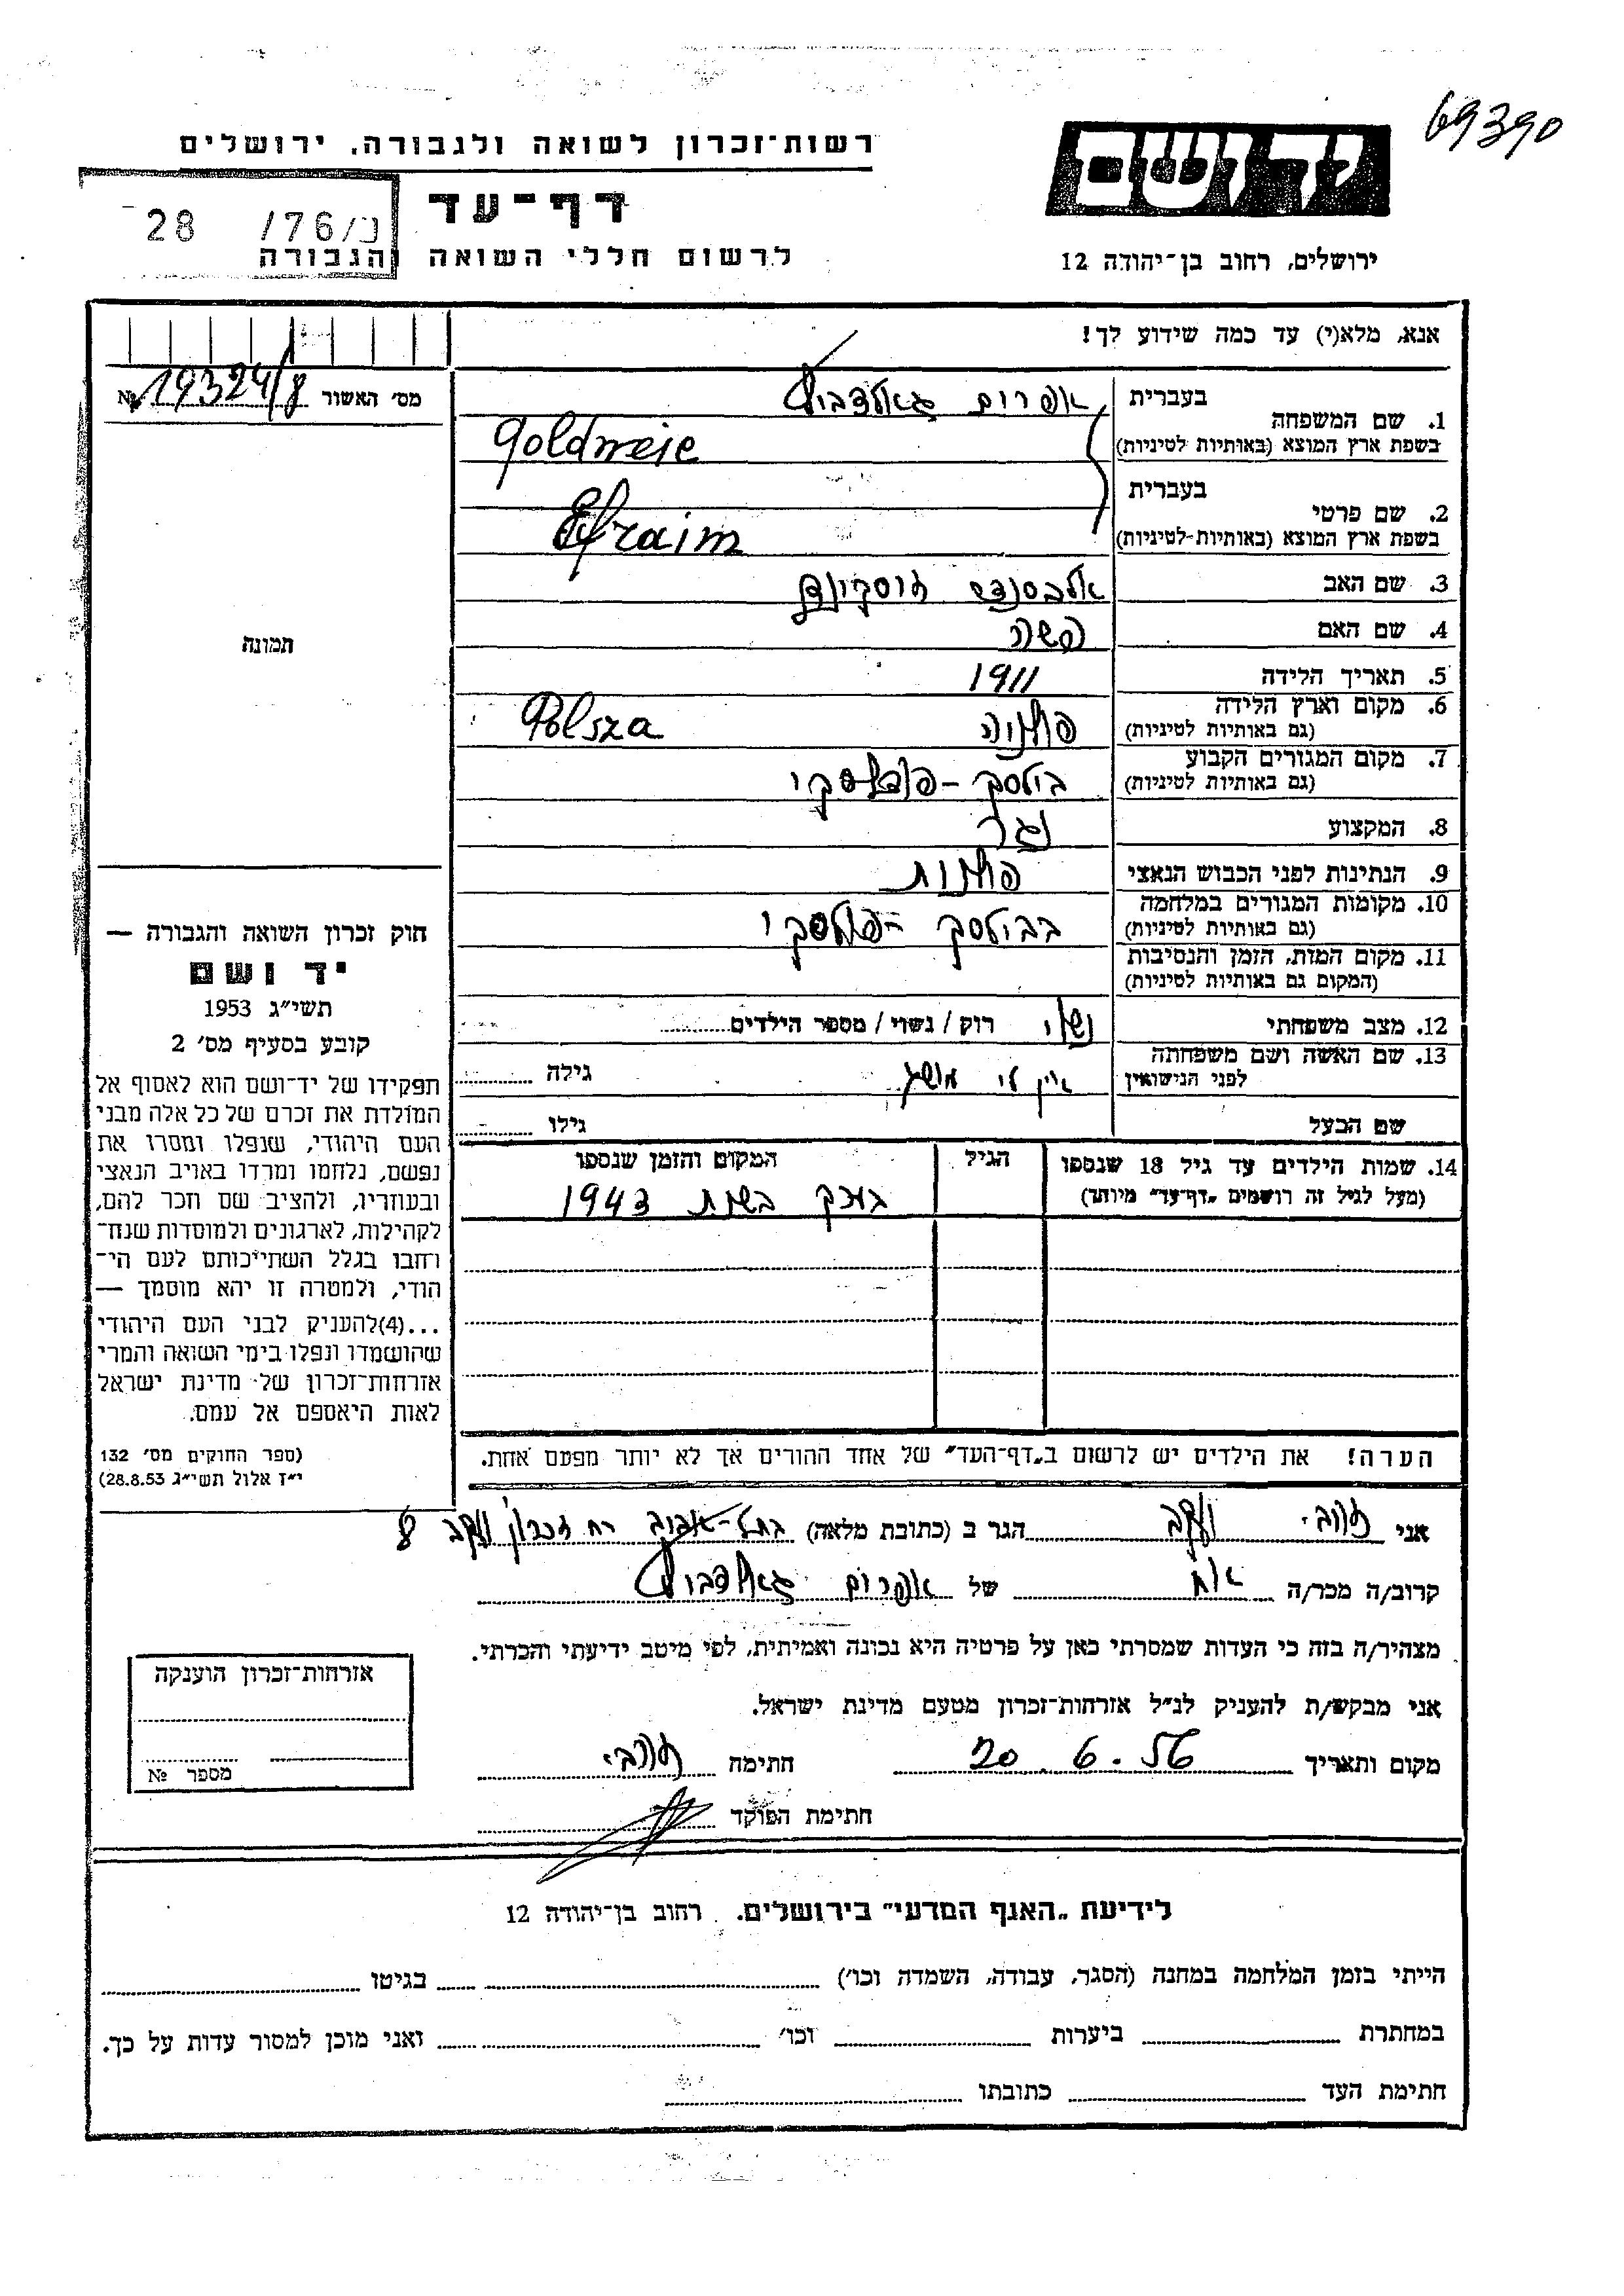 69390
רשות־זכרון לשואה ולגבורה, ירושלים
יד ושם
דף־עד
28 /76/נ
לרשום חללי השואה והגבורה
ירושלים, רחוב בן־יהודה 12
אנא, מלא(י) עד כמה שידוע לך!
מס׳ האשור 19324/8 №
1. שם המשפחה בעברית אפרים
בשפת ארץ המוצא (באותיות לטיניות) Goldweic
2. שם פרטי בעברית
בשפת ארץ המוצא (באותיות־לטיניות) Efraim
3. שם האב
4. שם האם משה
5. תאריך הלידה 1911
6. מקום וארץ הלידה פולניה Polsza
(גם באותיות לטיניות)
7. מקום המגורים הקבוע בילסק – פודלסקי
(גם באותיות לטיניות)
8. המקצוע נגר
9. הנתינות לפני הכבוש הנאצי פולנית
10. מקומות המגורים במלחמה בבילסק – פודלסקי
(גם באותיות לטיניות)
11. מקום המות, הזמן והנסיבות
(המקום גם באותיות לטיניות)
12. מצב משפחתי נשוי רוק / נשוי / מספר הילדים
13. שם האשה ושם משפחתה אין לי מושג גילה
לפני הנישואין
שם הבעל גילו
14. שמות הילדים עד גיל 18 שנספו הגיל המקום והזמן שנספו
(מעל לגיל זה רושמים „דף־עד״ מיוחד) בשנת 1943
הערה! את הילדים יש לרשום ב„דף־העד״ של אחד ההורים אך לא יותר מפעם אחת.
תמונה
חוק זכרון השואה והגבורה —
יד ושם
תשי״ג 1953
קובע בסעיף מס׳ 2
תפקידו של יד־ושם הוא לאסוף אל
המולדת את זכרם של כל אלה מבני
העם היהודי, שנפלו ומסרו את
נפשם, נלחמו ומרדו באויב הנאצי
ובעוזריו, ולהציב שם וזכר להם,
לקהילות, לארגונים ולמוסדות שנח־
רחבו בגלל השתייכותם לעם הי־
הודי, ולמטרה זו יהא מוסמך —
...(4)להעניק לבני העם היהודי
שהושמדו ונפלו בימי השואה והמרי
אזרחות־זכרון של מדינת ישראל
לאות היאספם אל עמם.
(ספר החוקים מס׳ 132
י״ז אלול תשי״ג 28.8.53)
אני יעקב הגר ב (כתובת מלאה) בתל–אביב רח זכרון יעקב 8
קרוב/ה מכר/ה אח של אפרים
מצהיר/ה בזה כי העדות שמסרתי כאן על פרטיה היא נכונה ואמיתית, לפי מיטב ידיעתי והכרתי.
אני מבקש/ת להעניק לנ״ל אזרחות־זכרון מטעם מדינת ישראל.
מקום ותאריך 20.6.56 חתימה
חתימת הפוקד
אזרחות־זכרון הוענקה
מספר №
לידיעת „האגף המדעי״ בירושלים. רחוב בן־יהודה 12
הייתי בזמן המלחמה במחנה (הסגר, עבודה, השמדה וכו׳) בגיטו
במחתרת ביערות וכו׳ ואני מוכן למסור עדות על כך.
חתימת העד כתובתו